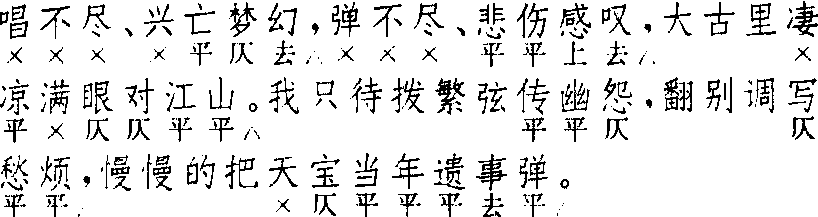 唱不尽、兴亡梦幻，弹不尽、悲伤感叹，大古里凄
× × × × 平 仄 去 △ × × × 平 平 上 去 △ ×
凉满眼对江山。我只待拨繁弦传幽怨，翻别调写
平 × 仄 仄 平 平 △ 平 平 仄 仄
愁烦，慢慢的把天宝当年遗事弹。
平 平 △ × 仄 平 平 平 去 平 △